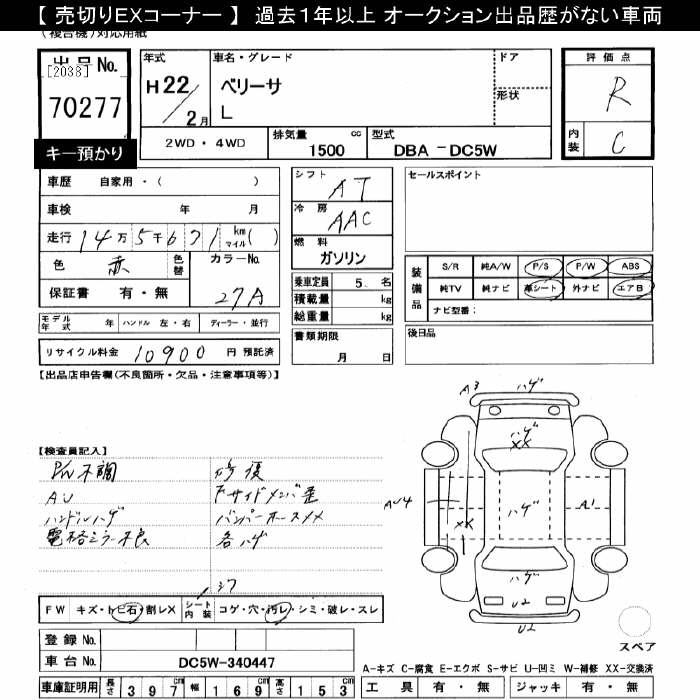 【 売切りEXコーナー 】 過去1年以上 オークション出品歴がない車両
(複合機)対応用紙
出品No.
[2038]
70277
キー預かり
年式
H22/2月
車名・グレード
ベリーサ
L
ドア
形状
評価点
R
内装
C
2WD・4WD
排気量 cc
1500
型式
DBA －DC5W
車歴 自家用・( )
車検 年 月
走行 14万5千671 km マイル( )
色 赤 色替 カラーNo.
保証書 有・無 27A
モデル年式 年 ハンドル 左・右 ディーラー・並行
リサイクル料金 10900 円 預託済
シフト AT
冷房 AAC
燃料 ガソリン
乗車定員 5 名
積載量 kg
総重量 kg
書類期限
月 日
セールスポイント
装備品
S/R 純A/W P/S P/W ABS
純TV 純ナビ 革シート 外ナビ エアB
ナビ型番：
後日品
【出品店申告欄(不良箇所・欠品・注意事項等)】
【検査員記入】
P/W不調 修復
AU 下サイドメンバ歪
ハンドルハゲ バンパーホースメメ
電格ミラー不良 各ハゲ
FW キズ・トビ石・割レX シート内装 コゲ・穴・汚レ・シミ・破レ・スレ
登録 No.
車台 No. DC5W-340447
車庫証明用 長さ 397cm 幅 169cm 高さ 153cm
A3 ハゲ
ハゲ
XX
AU4
ハゲ
A1
XX
ハゲ
U2
U2
スペア
A-キズ C-腐食 E-エクボ S-サビ U-凹ミ W-補修 XX-交換済
工具 有・無 ジャッキ 有・無